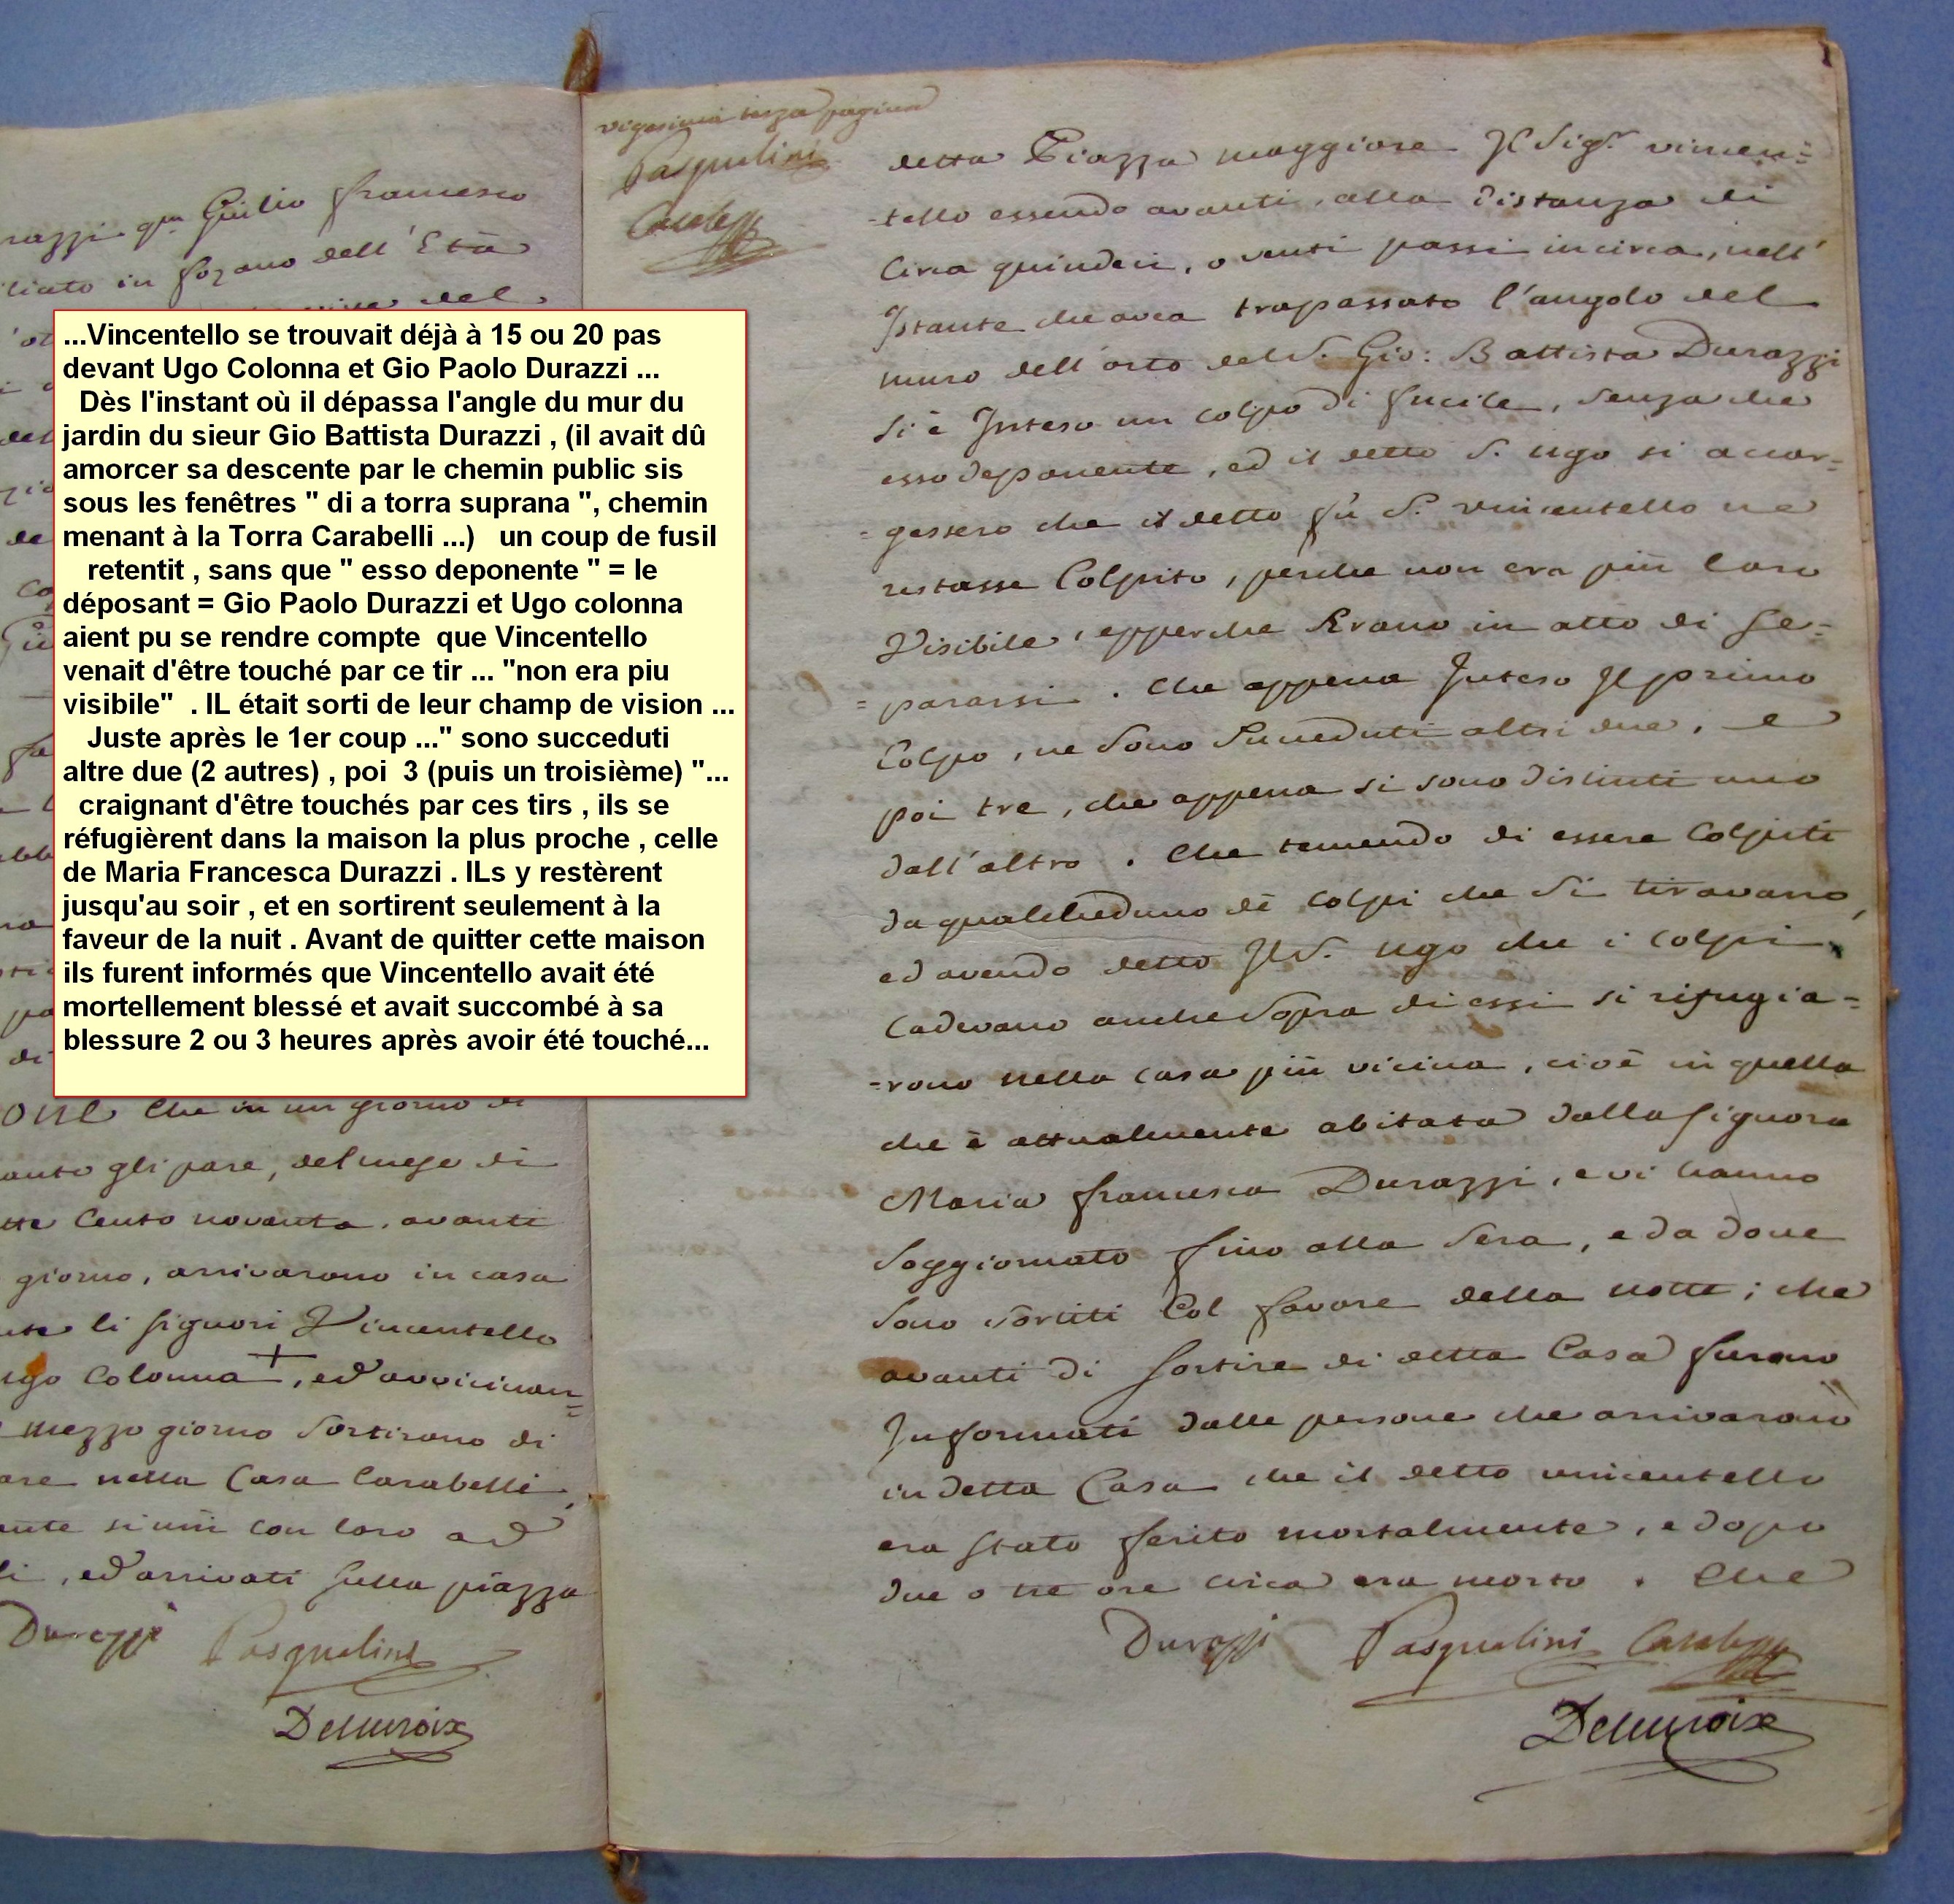 razzi qm Giulio francesco
liato in fozano dell'Età
del
one che in un giorno di
anto gli pare, del mese di
tte cento novanta, avanti
giorno, arrivarono in casa
nte li signori Vincentello
ugo Colonna +, ed avvicinan=
mezzo giorno Sortirono di
are nella Casa Carabelli,
ante si unì con loro ad
li, ed arrivati sulla piazza
Durazzi Pasqualini
Delacroix
...Vincentello se trouvait déjà à 15 ou 20 pas
devant Ugo Colonna et Gio Paolo Durazzi ...
Dès l'instant où il dépassa l'angle du mur du
jardin du sieur Gio Battista Durazzi , (il avait dû
amorcer sa descente par le chemin public sis
sous les fenêtres " di a torra suprana ", chemin
menant à la Torra Carabelli ...) un coup de fusil
retentit , sans que " esso deponente " = le
déposant = Gio Paolo Durazzi et Ugo colonna
aient pu se rendre compte que Vincentello
venait d'être touché par ce tir ... "non era piu
visibile" . IL était sorti de leur champ de vision ...
Juste après le 1er coup ..." sono succeduti
altre due (2 autres) , poi 3 (puis un troisième) "...
craignant d'être touchés par ces tirs , ils se
réfugièrent dans la maison la plus proche , celle
de Maria Francesca Durazzi . ILs y restèrent
jusqu'au soir , et en sortirent seulement à la
faveur de la nuit . Avant de quitter cette maison
ils furent informés que Vincentello avait été
mortellement blessé et avait succombé à sa
blessure 2 ou 3 heures après avoir été touché...
vigesima terza pagina
Pasqualini
detta Piazza maggiore Il Sigr vincen=
-tello essendo avanti, alla Distanza di
Circa quindeci, o venti passi incirca, nell'
Istante che avea trapassato l'angolo del
muro dell'orto del S. Gio: Battista Durazzi
si è Inteso un colpo di fucile, senza che
esso deponente, ed il detto S. ugo si accor=
=gessero che il detto fù S. vincentello ne
restasse Colpito, perche non era più loro
Visibile, epperche Erano in atto di se=
=pararsi. Che appena Inteso Il primo
Colpo, ne sono Succeduti altri due, e
poi tre, che appena si sono distinti uno
dall'altro. Che temendo di essere Colpiti
da qualcheduno dè colpi che si tiravano,
ed avendo detto Il S. ugo che i colpi
Cadevano anche sopra di essi si rifugia=
-rono nella casa più vicina, cioè in quella
che è attualmente abitata dalla signora
Maria francesca Durazzi, e vi hanno
Soggiornato fino alla sera, e da dove
sono sortiti Col favore della notte; che
avanti di sortire di detta Casa furono
Informati dalle persone che arrivarono
in detta Casa che il detto vincentello
era stato ferito mortalmente, e dopo
due o tre ore circa era morto. Che
Durazzi Pasqualini
Delacroix